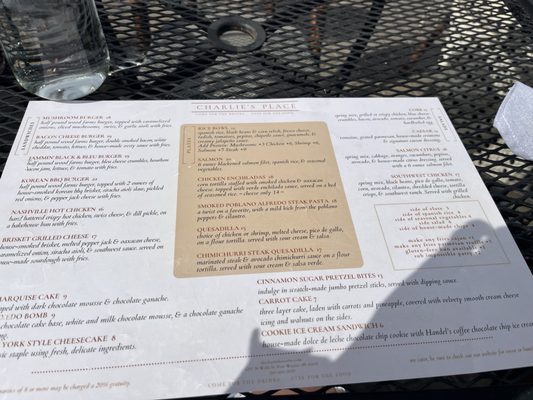 CHARLIE'S PLACE
COME FOR THE DRINKS. STAY FOR THE FOOD.
SANDWICHES
MUSHROOM BURGER 18
half pound wood farms burger, topped with caramelized
onions, sliced mushrooms, swiss, & garlic aioli with fries.
BACON CHEESE BURGER
half pound wood farms burger, double smoked bacon, white
cheddar, tomato, lettuce, & house-made curry sauce with fries.
JAMMIN' BLACK & BLEU BURGER
half pound wood farms burger, bleu cheese crumbles, bourbon
bacon jam, lettuce, & tomato with fries.
KOREAN BBQ BURGER
half pound wood farms burger, topped with 2 ounces of
house-smoked korean bbq brisket, sriracha aioli slaw, pickled
red onions, & pepper jack cheese with fries.
NASHVILLE HOT CHICKEN 16
hot! buttered crispy hot chicken, swiss cheese, & dill pickle, on
a hawaiian bun with fries.
BRISKET GRILLED CHEESE 17
house-smoked brisket, melted pepper jack & oaxacan cheese,
caramelized onion, sriracha aioli, & southwest sauce. served on
house-made sourdough with fries.
PLATES
RICE BOWL
spanish rice, black bean & corn relish, fresco cheese,
radish, tomatoes, pepitas, chipotle sauce, guacamole, &
creamy jalapeno sauce
Add Protein: Mushrooms +3 Chicken +6, Shrimp +6,
Salmon +7 Steak +8
SALMON
6 ounce blackened salmon filet, spanish rice, & seasonal
vegetables.
CHICKEN ENCHILADAS 18
corn tortilla stuffed with smoked chicken & oaxacan
cheese, topped with verde enchilada sauce, served on a bed
of seasoned rice. - cheese only 14 -
SMOKED POBLANO ALFREDO STEAK PASTA 18
a twist on a favorite, with a mild kick from the poblano
peppers & cilantro.
QUESADILLA 15
choice of chicken or shrimp, melted cheese, pico de gallo,
on a flour tortilla. served with sour cream & salsa.
CHIMICHURRI STEAK QUESADILLA 17
marinated steak & avocado chimichurri sauce on a flour
tortilla. served with sour cream & salsa verde.
COBB
spring mix, grilled or crispy chicken, blue cheese
crumbles, bacon, avocado, tomato, cucumber, &
hardboiled egg
CAESAR
romaine, grand parmesan, house-made croutons
& signature caesar dressing.
SALMON CITRUS 16
spring mix, cabbage, oranges, cucumber, pepitas,
avocado, & house-made citrus dressing. served
with a 6 ounce salmon filet.
SOUTHWEST CHICKEN
spring mix, black beans, pico de gallo, tomato,
corn, avocado, cilantro, shredded cheese, tortilla
crisps, & southwest ranch. Served with grilled
chicken.
side of slaw 3
side of spanish rice
side of seasonal vegetables
side salad
side of house-made chips
make any fries cajun
make any fries parmesan truffle
gluten-free buns available
sub impossible patty
MARQUISE CAKE 9
topped with dark chocolate mousse & chocolate ganache.
TUXEDO BOMB 9
chocolate cake base, white and milk chocolate mousse, & a chocolate ganache
YORK STYLE CHEESECAKE 8
staple using fresh, delicate ingredients.
CINNAMON SUGAR PRETZEL BITES 13
indulge in scratch-made jumbo pretzel sticks, served with dipping sauce.
CARROT CAKE 7
three layer cake, laden with carrots and pineapple, covered with velvety smooth cream cheese
icing and walnuts on the sides.
COOKIE ICE CREAM SANDWICH 6
house-made dulce de leche chocolate chip cookie with Handel's coffee chocolate chip ice cream
parties of 8 or more may be charged a 20% gratuity.
COME FOR THE DRINKS. STAY FOR THE FOOD.